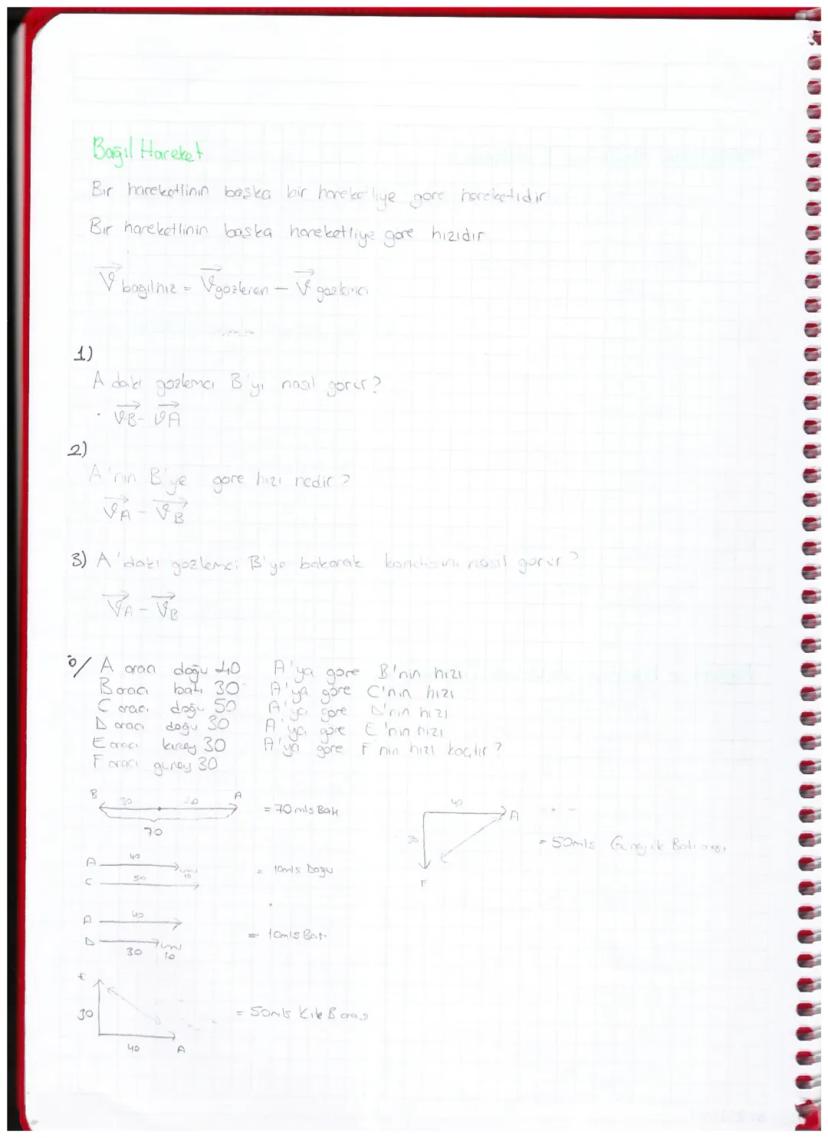 Bağıl Hareket
Bir hareketlinin başka bir hareketliye göre hareketidir
Bir hareketlinin başka hareketliye göre hızıdır
V bağılhız = Vgözlenen - V gözlemci
1)
A daki gözlemci B'yi nasıl görür?
· VB - VA
2)
A'nın B'ye göre hızı nedir?
VA - VB
3) A'daki gözlemci B'ye bakarak kendisini nasıl görür?
VA - VB
A aracı doğu 40 A'ya göre B'nin hızı
B aracı batı 30 A'ya göre C'nin hızı
C aracı doğu 50 A'ya göre D'nin hızı
D aracı doğu 30 A'ya göre E'nin hızı
E aracı kuzey 30 A'ya göre F'nin hızı kaçtır?
F aracı güney 30
B 30 40 A = 70 m/s Batı
70
40 A
30
F
= 50m/s
A 40
C 50 10 = 10m/s Doğu
A 40
D 30 10 = 10m/s Batı
E
30 = 50m/s
40 A